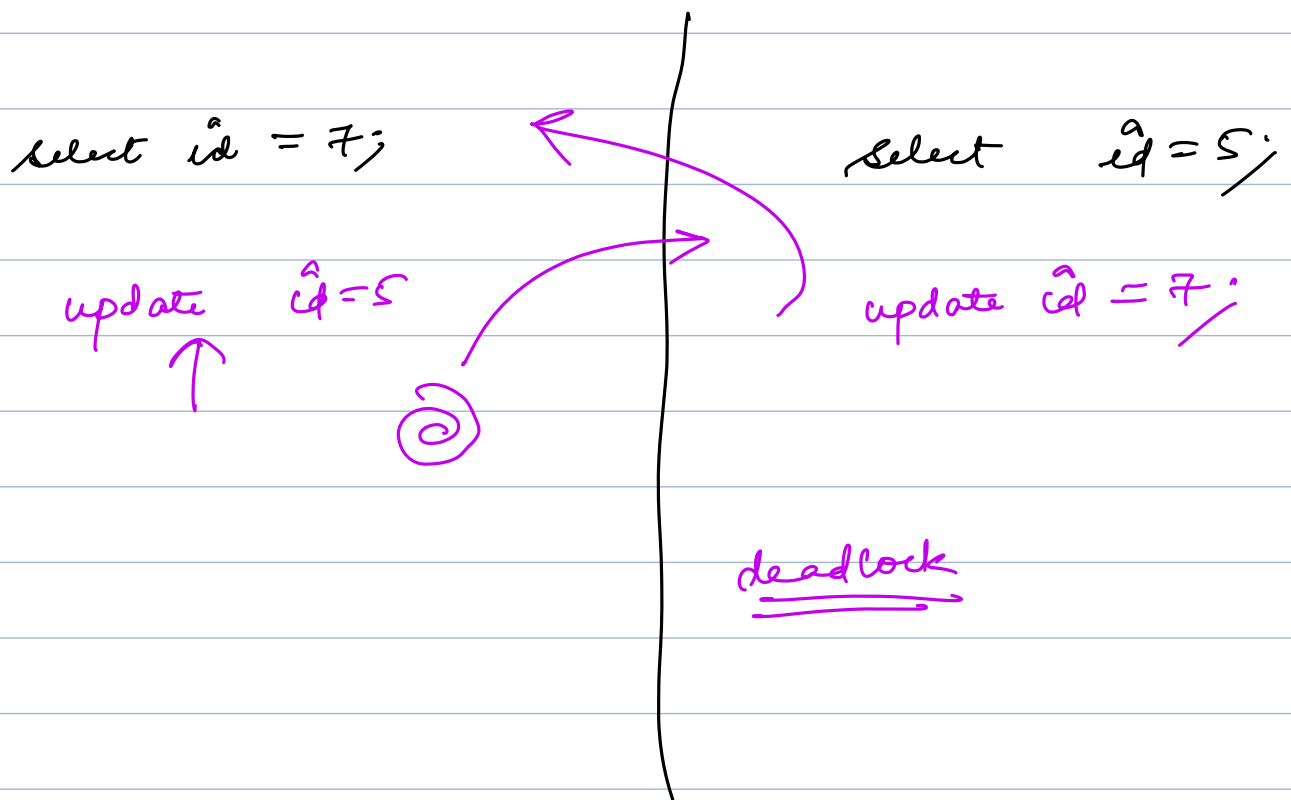 select id = 7;
update id=5
select id = 5;
update id = 7;
deadlock